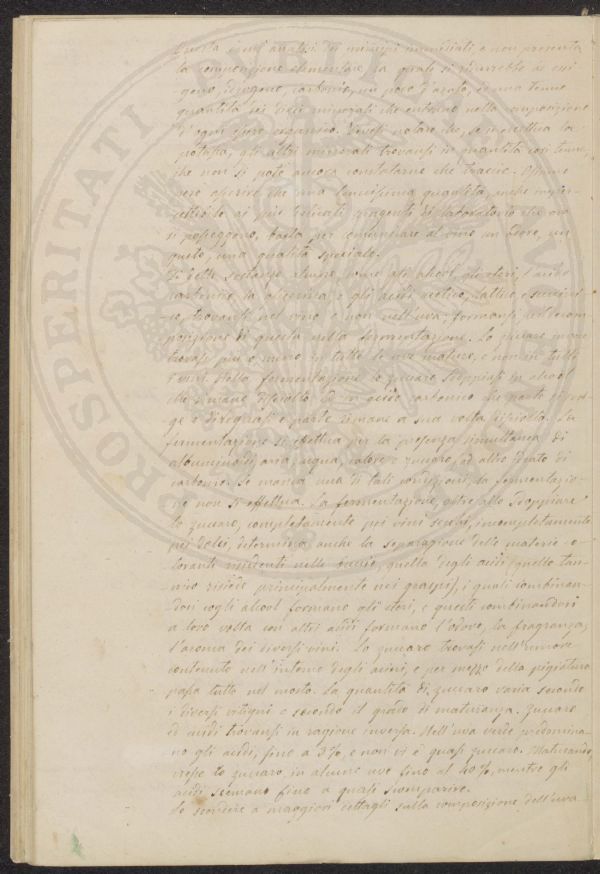 Questa è un'analisi dei principi immediati, e non presenta
la composizione elementare, la quale si ridurrebbe in ossi
geno, idrogeno, carbonio, un poco d'azoto, ed una tenue
quantità dei dieci minerali che entrano nella composizione
d'ogni essere organico. Devesi notare che, se si eccettua la
potassa, gli altri minerali trovansi in quantità così tenue,
che non si potè ancora constatarne che traccie.
però asserire che una tenuissima quantità, anche imper-
cettibile ai più delicati reagenti di laboratorio che ora
si posseggono, basta per comunicare al vino un odore, un
gusto, una qualità speciale.
Di dette sostanze alcune, come gli alcool, gli eteri, l'acido
carbonico, la glicerina e gli acidi acetico, lattico e succini-
co, trovansi nel vino e non nell'uva; formansi
di questa nella fermentazione. Lo zucchero
trovasi più o meno in tutte le uve mature, e non in tutti
i vini. Nella fermentazione lo zucchero sdoppiasi in alcool
che rimane disciolto ed in acido carbonico che parte
e dileguasi e parte rimane a sua volta disciolto. La
fermentazione si effettua per la presenza simultanea di
albumina, aria, acqua, calore e zucchero, od altro idrato di
carbonio. Se manca una di tali condizioni, la fermentazio-
ne non si effettua. La fermentazione, oltre allo sdoppiare
lo zuccaro, completamente pei vini secchi, incompletamente
pei dolci, determina anche la separazione delle materie co-
loranti residenti nelle bucce, quella degli acidi (quello tan-
nico risiede principalmente nei graspi), i quali combinan-
dosi cogli alcool formano gli eteri, e questi combinandosi
a loro volta con altri acidi formano l'odore, la fragranza,
l'aroma dei diversi vini. Lo zuccaro trovasi nell'umore
contenuto nell'interno degli acini, e per mezzo della pigiatura
passa tutto nel mosto. La quantità di zuccaro varia secondo
i diversi vitigni e secondo il grado di maturanza. Zuccaro
ed acidi trovansi in ragione inversa. Nell'uva verde predomina-
no gli acidi, fino a 3%, e non vi è quasi zuccaro. Maturando,
cresce lo zuccaro, in alcune uve fino al 40%, mentre gli
acidi scemano fino a quasi scomparire.
Lo scendere a maggiori dettagli sulla composizione dell'uva
PROSPERITATI PUBLICAE